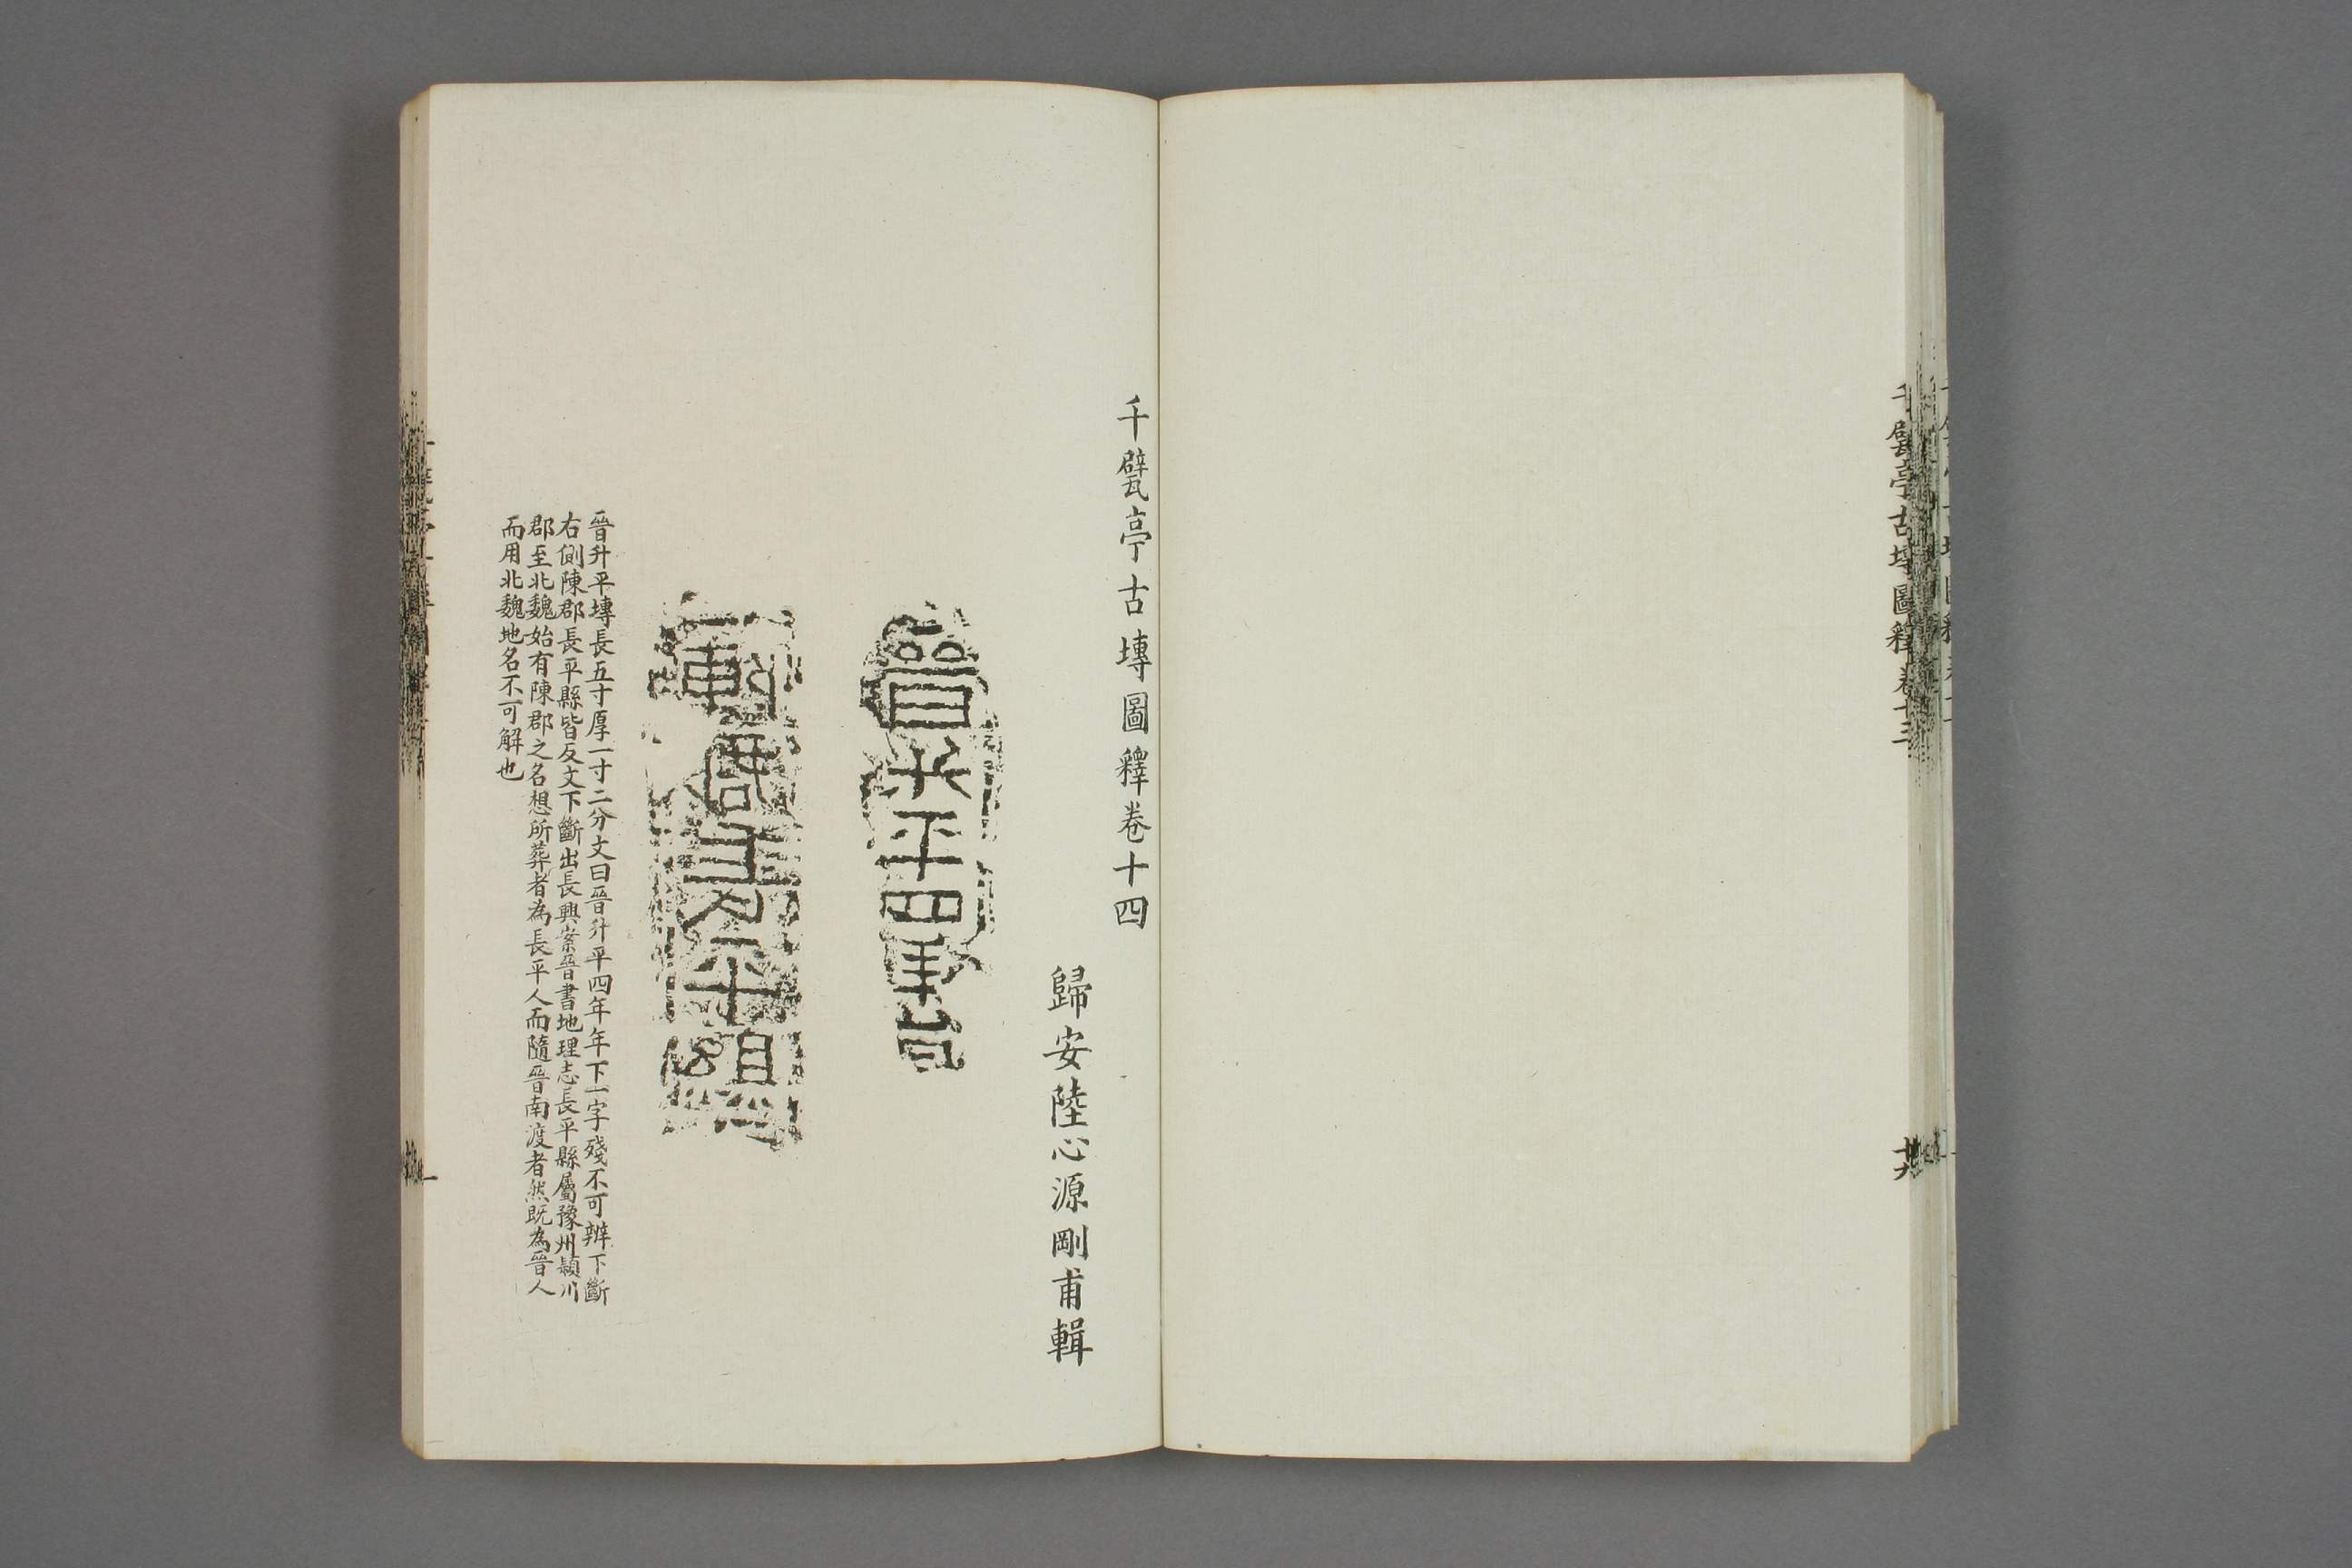 千甓亭古塼圖釋卷十三
千甓亭古塼圖釋卷十四
歸安陸心源剛甫輯
晉升平四年
晉升平塼長五寸厚一寸二分文曰晉升平四年年下一字殘不可辨下斷
右側陳郡長平縣皆反文下斷出長興案晉書地理志長平縣屬豫州潁川
郡至北魏始有陳郡之名想所葬者為長平人而隨晉南渡者然既為晉人
而用北魏地名不可解也